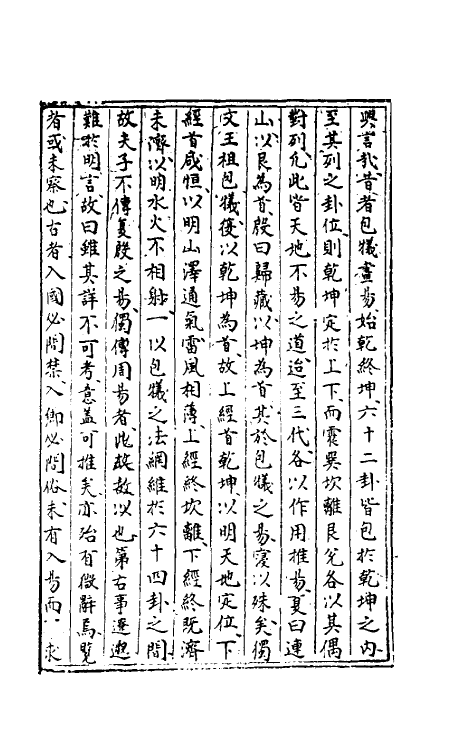 興言哉昔者包犧畫易始乾終坤六十二卦皆包於乾坤之內
至其列之卦位則乾坤定於上下而震巽坎離艮兌各以其偶
對列允此皆天地不易之道迨至三代各以作用推易夏曰連
山以艮為首殷曰歸藏以坤為首其於包犧之易寖以殊矣獨
文王祖包犧復以乾坤為首故上經首乾坤以明天地定位下
經首咸恒以明山澤通氣雷風相薄上經終坎離下經終既濟
未濟以明水火不相射一以包犧之法網維於六十四卦之間
故夫子不傳夏殷之易獨傳周易者此故故以也第古事遼邈
難於明言故曰雖其詳不可考意盖可推矣亦殆有微辭焉覽
者或未察也古者入國必問禁入鄉必問俗未有入易而不求